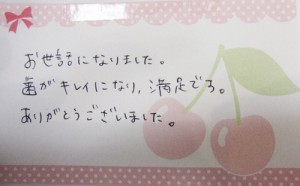 お世話になりました。
歯がキレイになり、満足でる。
ありがとうございました。